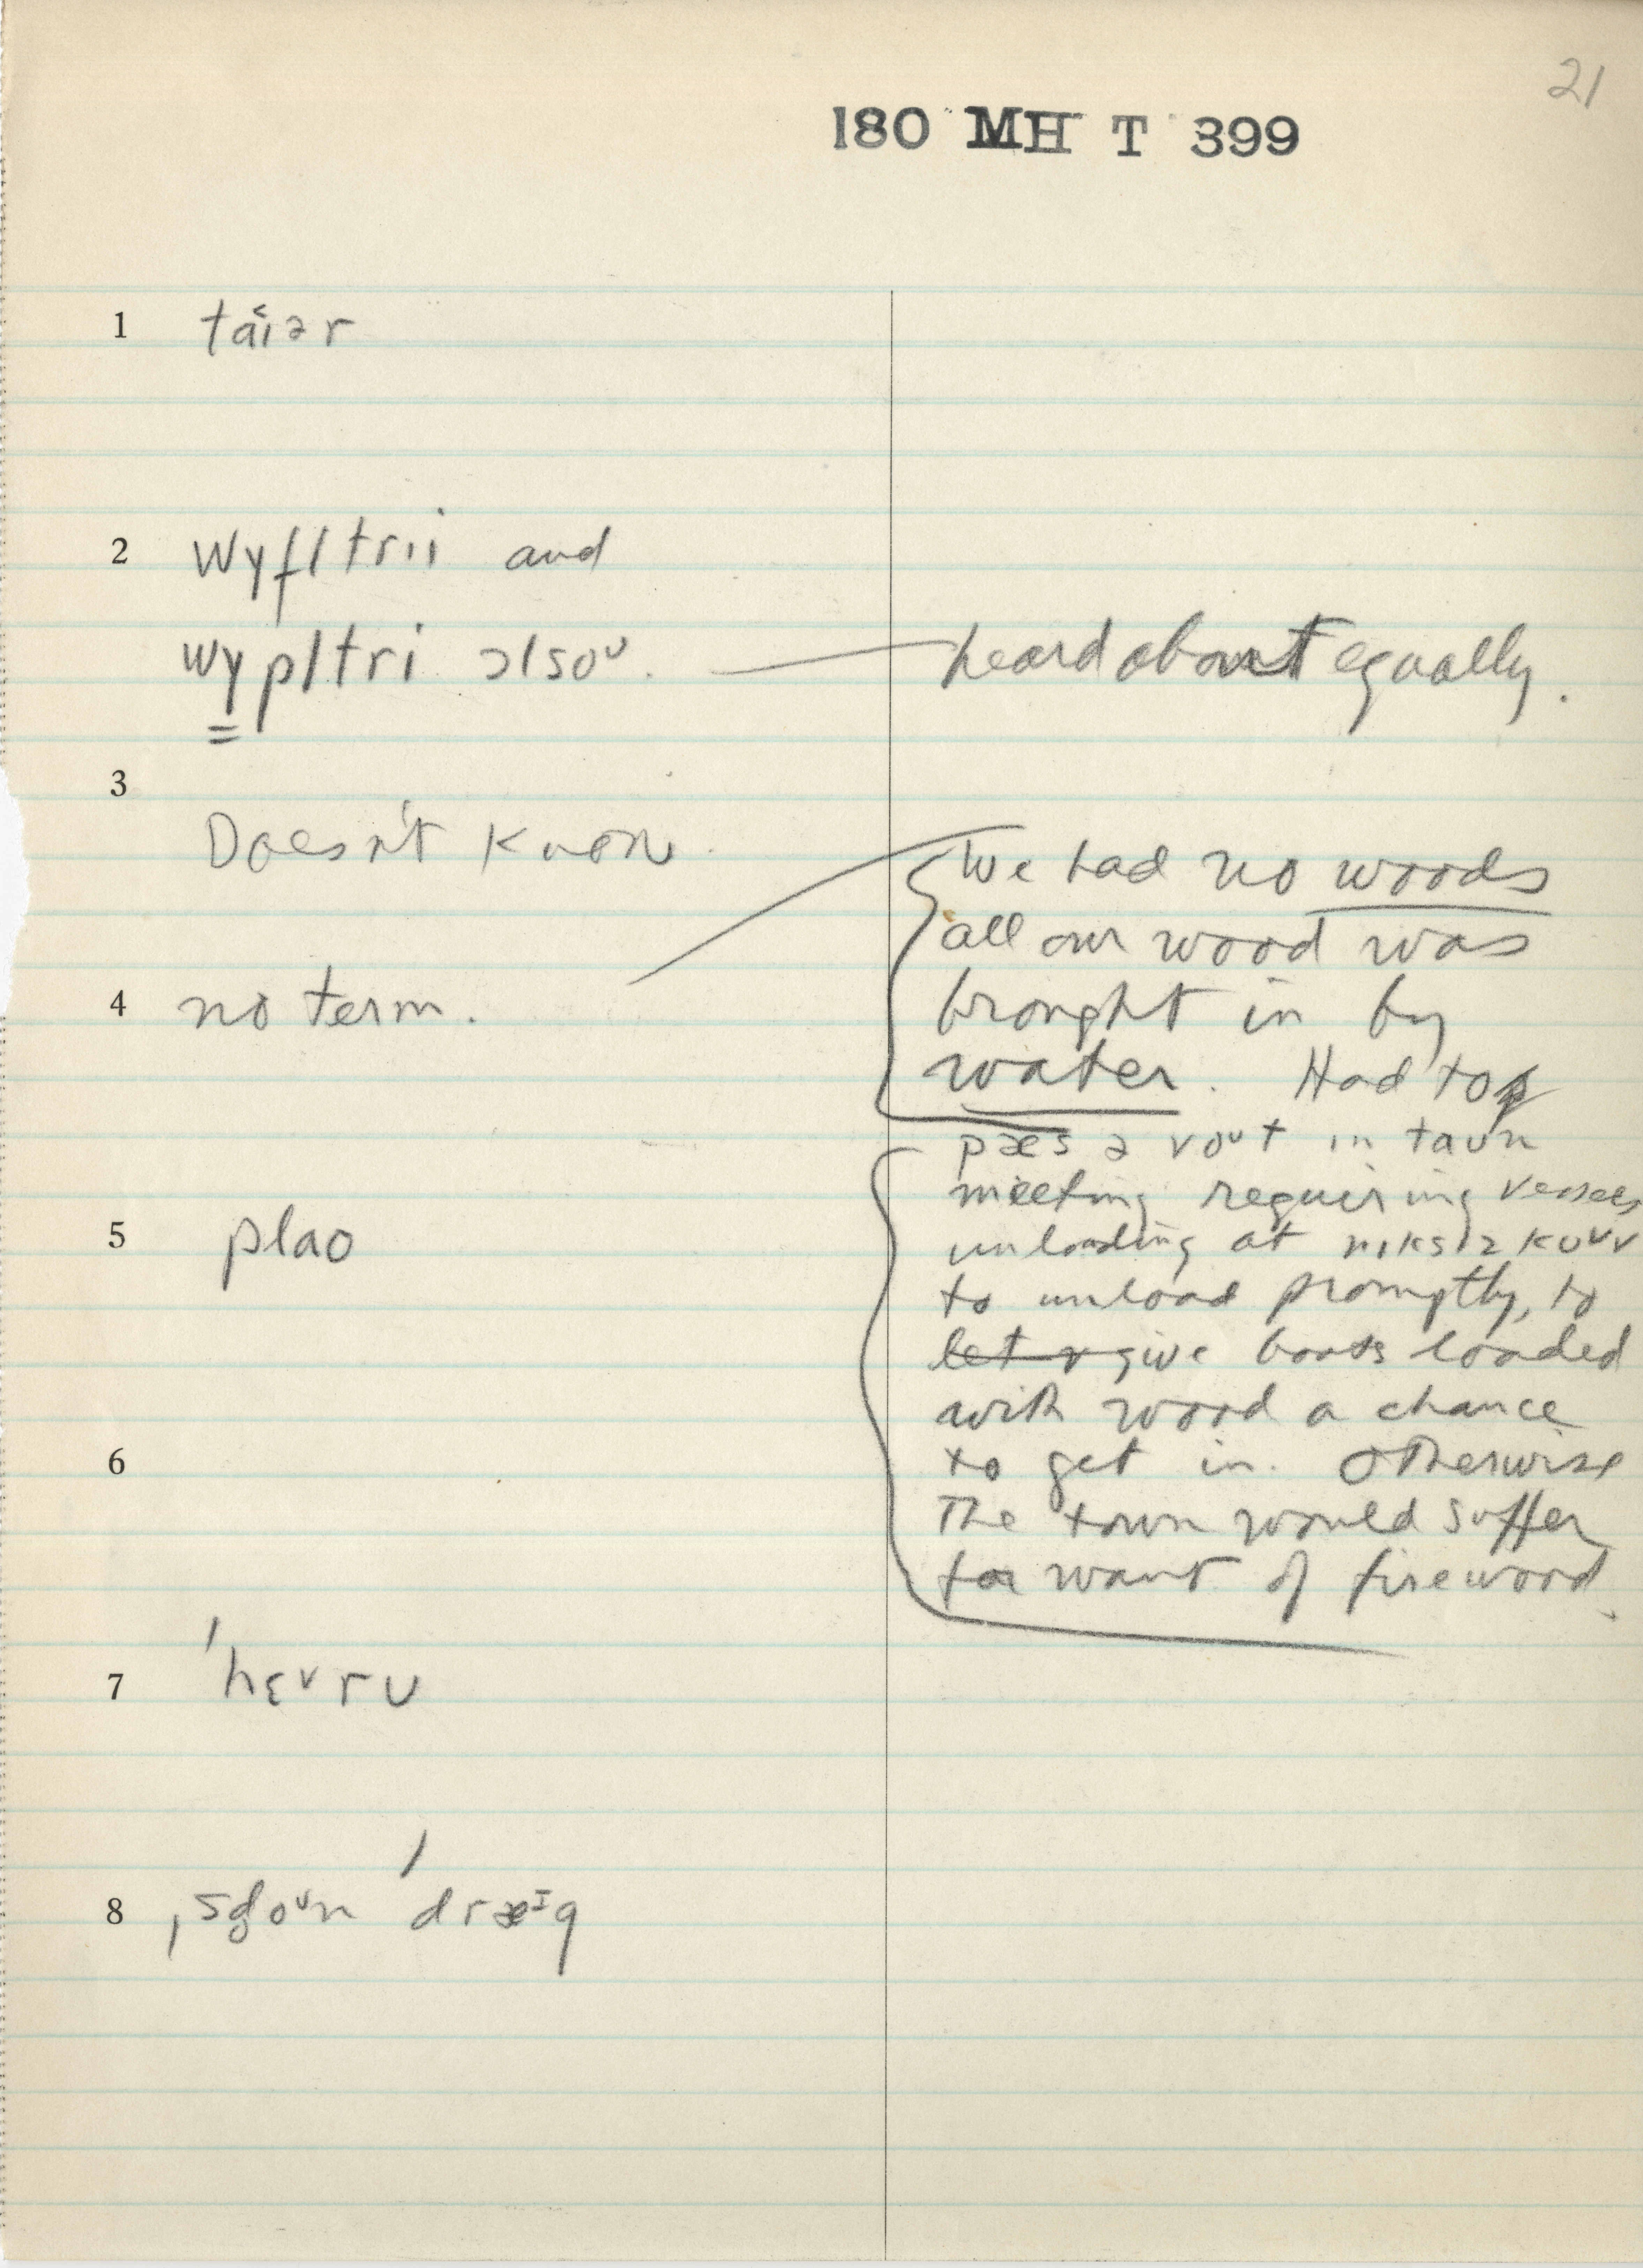 21
180 MH T 399
1 ta˂iər
2 wyfltrii and
wypltri ɔlsoᴜ. heard about equally.
3
Doesn't know.
We had no woods
all our wood was
4 no term. brought in by
water. Had to
pæs ə voᴜt in taʊn
meeting requiring vessels
5 plaʊ unloading at nɪksɪz koᴜv
to unload promptly, to
let give boats loaded
with wood a chance
6 to get in. Otherwise
The town would suffer
for want of firewood.
7 ˈhɛᵛrʊ
8 ˌsd̥oᴜn ˈdræɪg